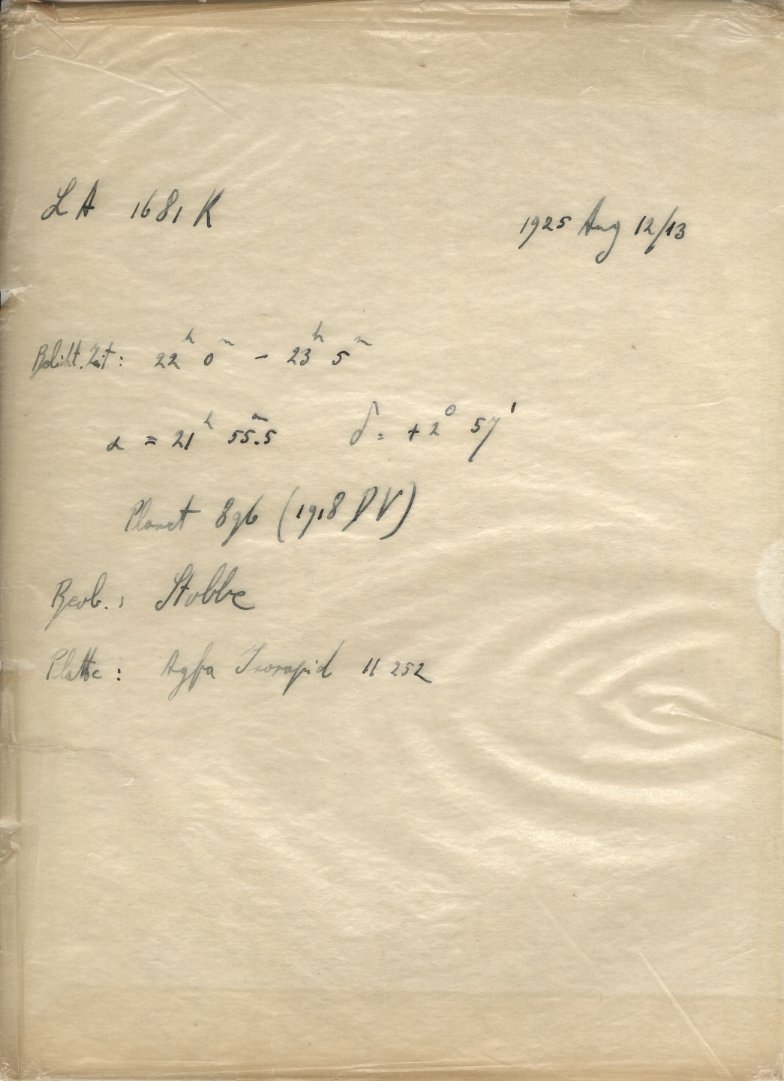 LA 1681 K 1925 Aug 12/13
Belicht. Zeit: 22ʰ 0ᵐ – 23ʰ 5ᵐ
α = 21ʰ 55ᵐ.5 δ = +2° 57'
Planet 896 (1918 DV)
Beob.: Stobbe
Platte: Agfa Isorapid 11 252